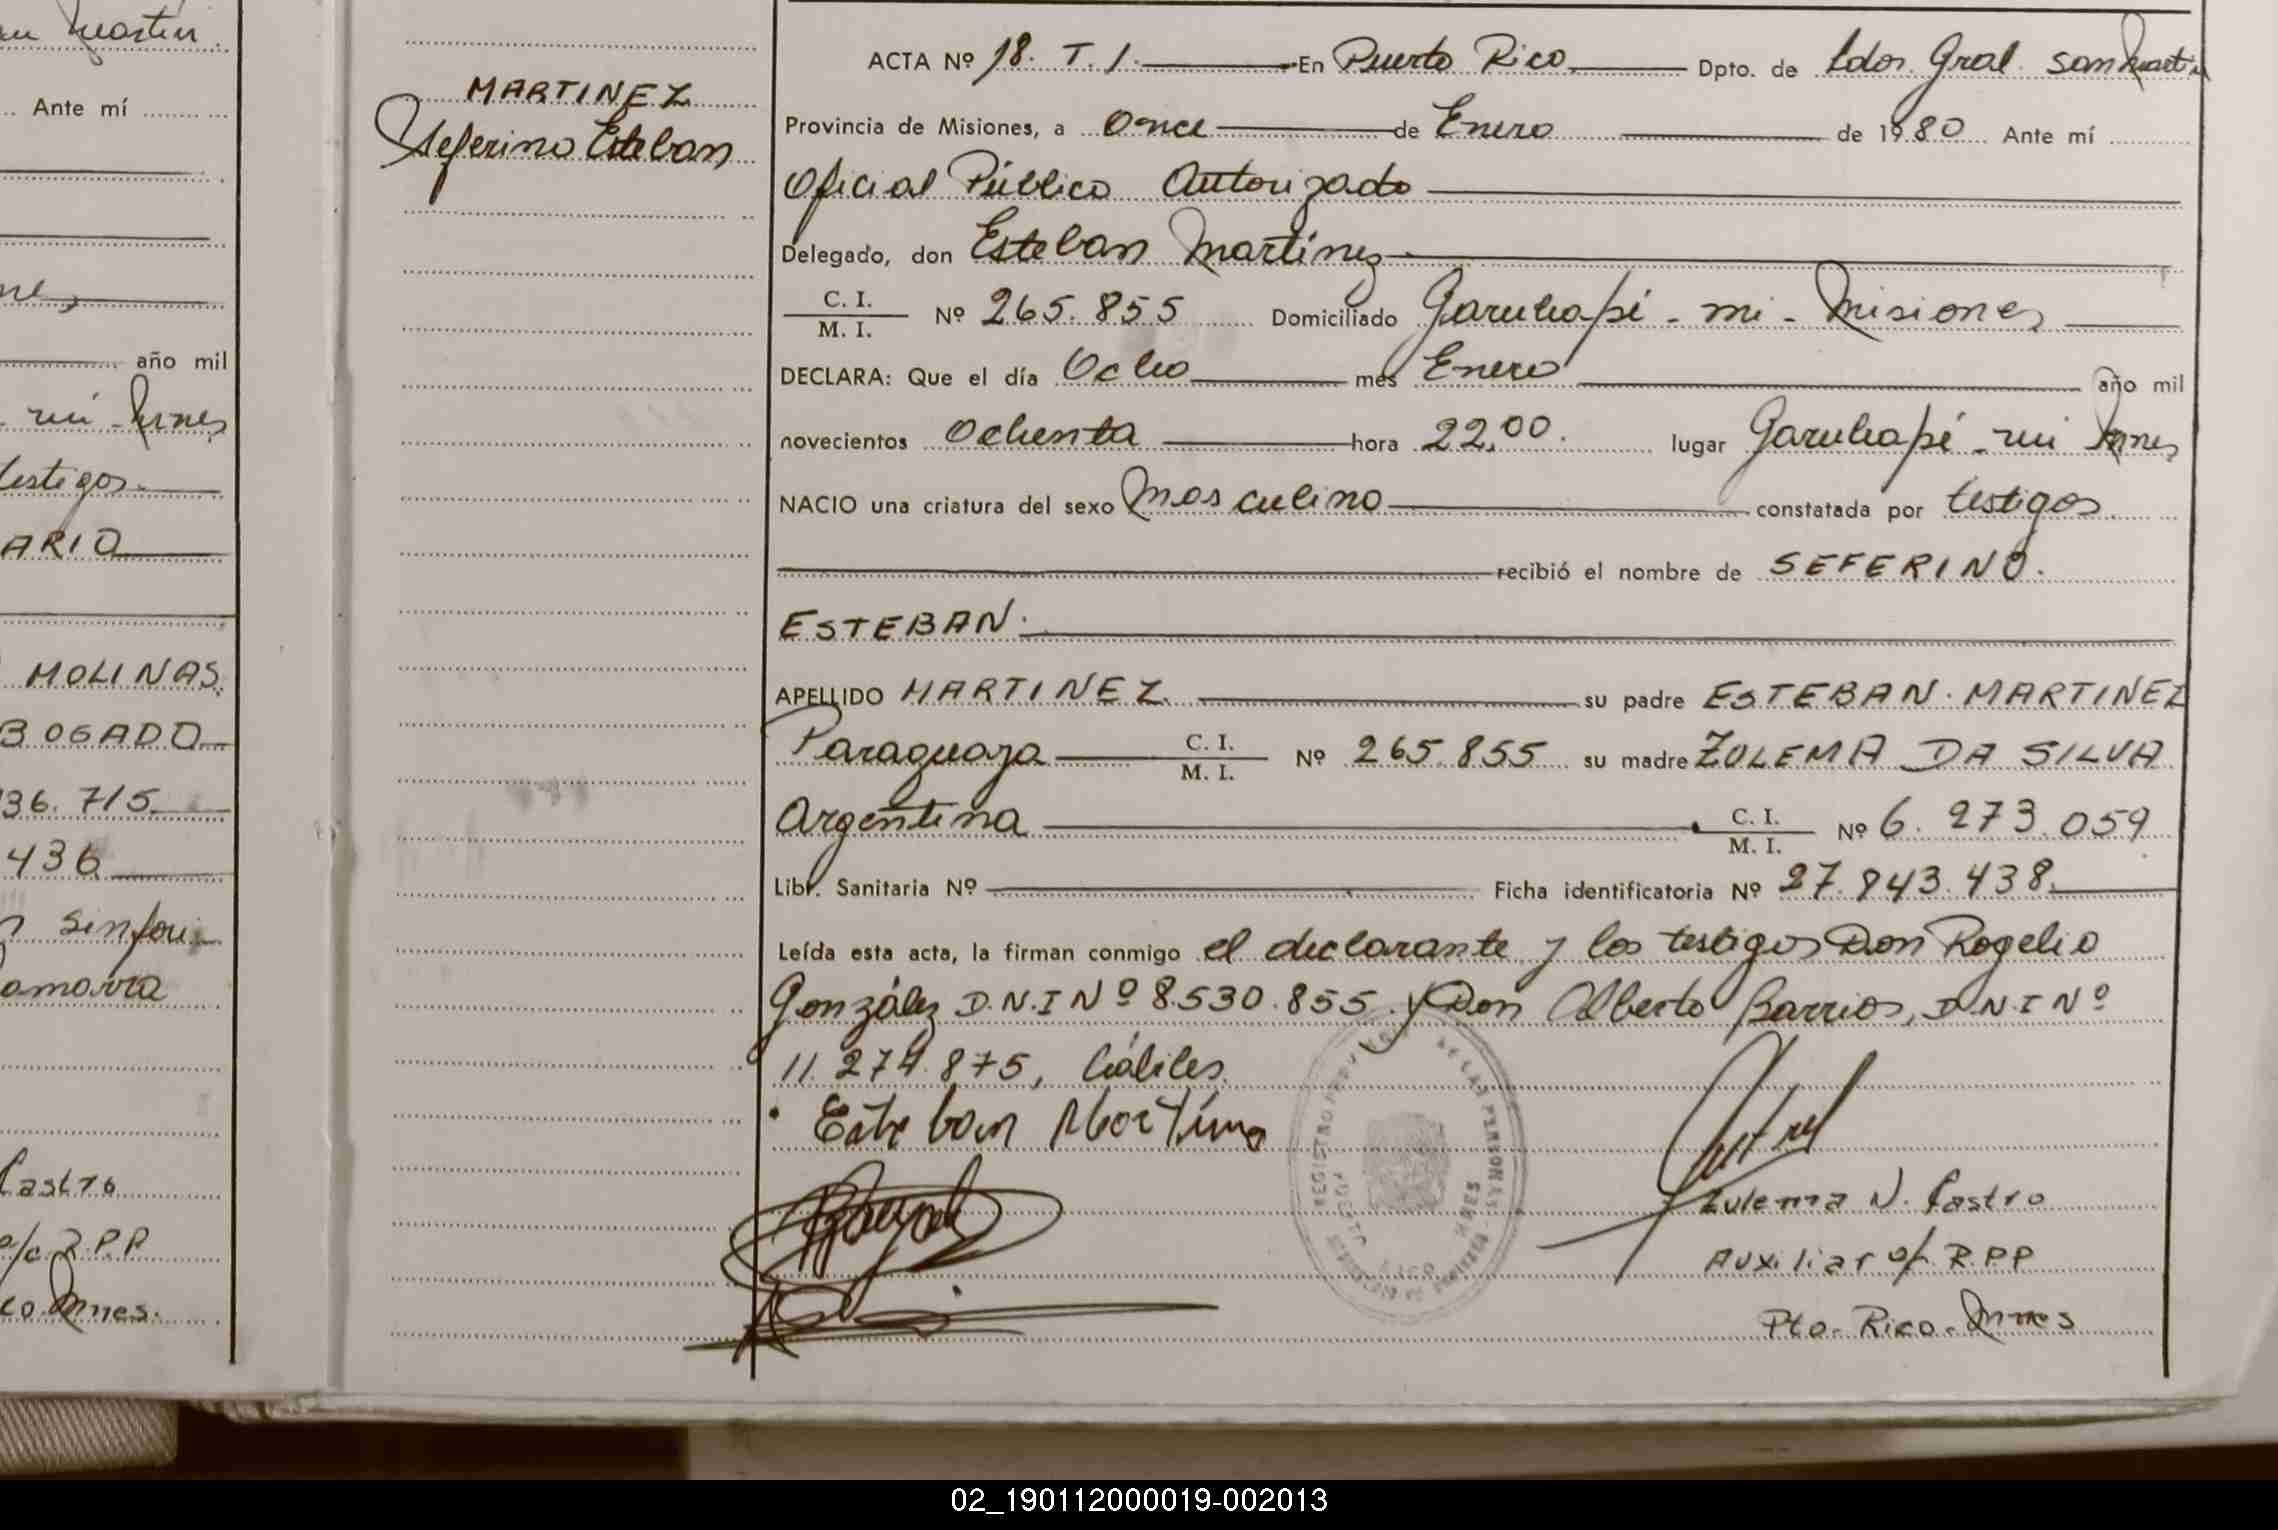 an Martin
Ante mí
año mil
mi - Mnes
testigos
ARIO
MOLINAS
BOGADO
36.715
436
Sinfori
amarra
Castro
o/c R.P.P
co. Mnes.
MARTINEZ
Seferino Esteban
ACTA Nº 18. T. 1. En Puerto Rico Dpto. de Ldor. Gral. San Martin
Provincia de Misiones, a Once de Enero de 1980 Ante mí
Oficial Público Autorizado
Delegado, don Esteban Martínez
C. I. / M. I. Nº 265.855 Domiciliado Garuhapé - mi - Misiones
DECLARA: Que el día Ocho mes Enero año mil
novecientos Ochenta hora 22,00. lugar Garuhapé - mi Mnes
NACIO una criatura del sexo Masculino constatada por testigos
recibió el nombre de SEFERINO.
ESTEBAN.
APELLIDO MARTINEZ su padre ESTEBAN MARTINEZ
Paraguaya C. I. / M. I. Nº 265.855 su madre ZOLEMA DA SILVA
Argentina C. I. / M. I. Nº 6.273.059
Libr. Sanitaria Nº Ficha identificatoria Nº 27.843.438
Leída esta acta, la firman conmigo el declarante y los testigos Don Rogelio
González D.N.I Nº 8.530.855 y Don Alberto Barrios, D.N.I Nº
11.274.875, hábiles.
Esteban Martínez
REGISTRO PROVINCIAL DE LAS PERSONAS
MNES
Zulema N. Castro
Auxiliar o/c R.P.P
Pto. Rico - Mnes
02_190112000019-002013